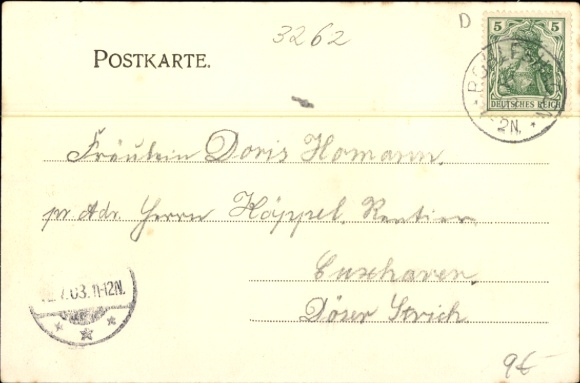 3262
D
POSTKARTE.
5 5
DEUTSCHES REICH
2N.
Fräulein Doris Homann,
pr Adr. Herrn Köppel, Rentier
Cuxhaven,
Döser Strich.
7.03. 11-12N.
9€